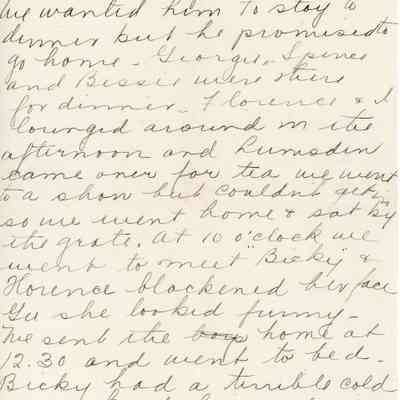 We wanted him to stay to
dinner but he promised to
go home - Georgie, Spence
and Bessie were there
for dinner - Florence & I
lounged around in the
afternoon and Lumsden
came over for tea we went
to a show but couldnt get in
so we went home & sat by
the grate. At 10 o'clock we
went to meet "Bicky" &
Florence blackened her face
Gee she looked funny -
We sent the boys home at
12.30 and went to bed -
Bicky had a terrible cold